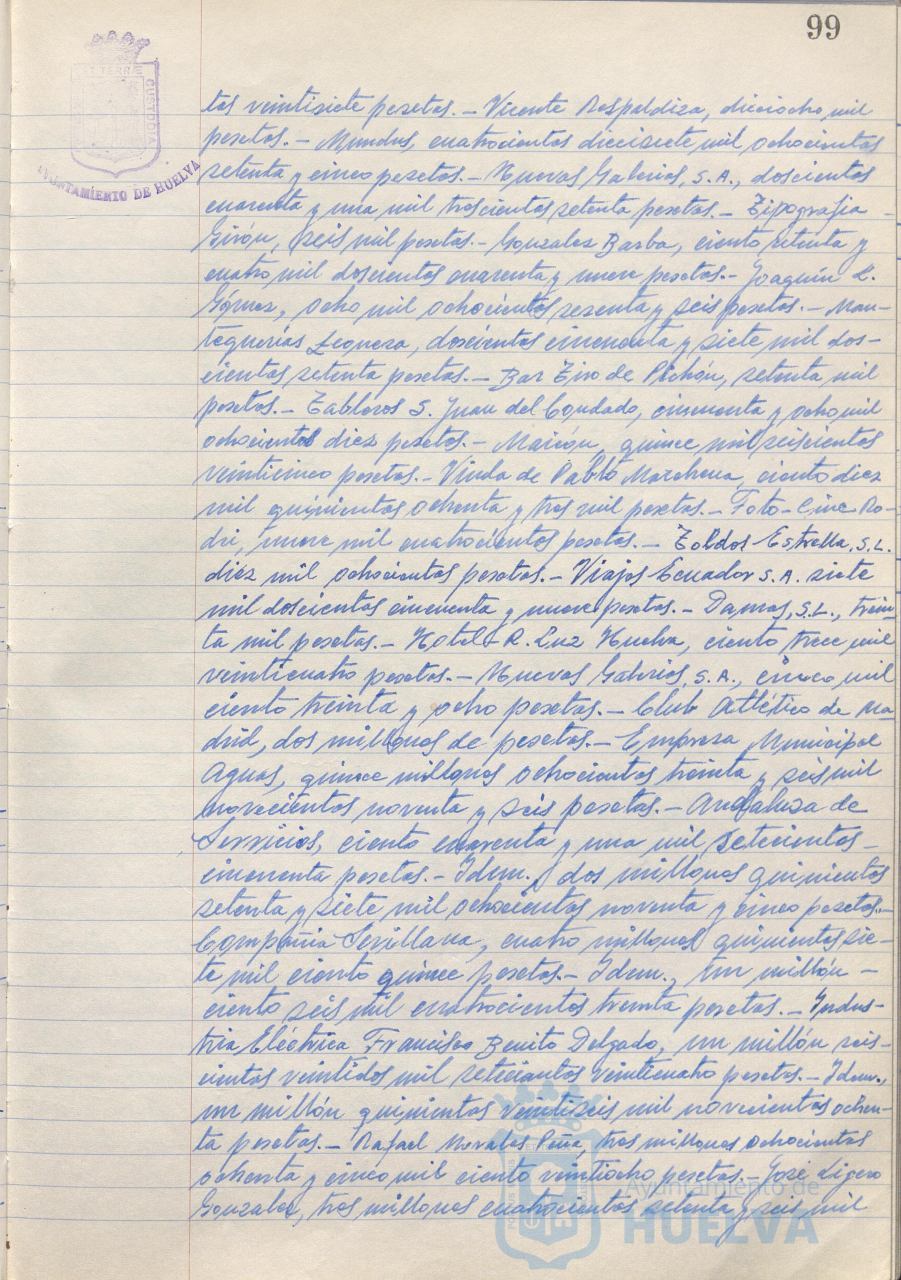 99
T TERRÆ
CUSTODIA
AYUNTAMIENTO DE HUELVA
tas veintisiete pesetas.- Vicente Respaldiza, dieciocho mil
pesetas.- Mundus, cuatrocientas diecisiete mil ochocientas
setenta y cinco pesetas.- Nuevas Galerias, S.A., doscientas
cuarenta y una mil trescientas setenta pesetas.- Tipografia -
Girón, seis mil pesetas.- Gonzalez Barba, ciento setenta y
cuatro mil doscientas cuarenta y nueve pesetas.- Joaquín L.
Gómez, ocho mil ochocientas sesenta y seis pesetas.- Man-
tequerías Leonesa, doscientas cincuenta y siete mil dos-
cientas setenta pesetas.- Bar Tiro de Pichón, setenta mil
pesetas.- Tableros S. Juan del Condado, cincuenta y ocho mil
ochocientas diez pesetas.- Maicón, quince mil seiscientas
veinticinco pesetas.- Viuda de Pablo Marchena, ciento diez
mil quinientas ochenta y tres mil pesetas.- Foto-Cine Ro-
dri, nueve mil cuatrocientas pesetas.- Toldos Estrella, S.L.
diez mil ochocientas pesetas.- Viajes Ecuador S.A. siete
mil doscientas cincuenta y nueve pesetas.- Damas, S.L., trein-
ta mil pesetas.- Hotel R. Luz Huelva, ciento trece mil
veinticuatro pesetas.- Nuevas Galerias, S.A., cinco mil
ciento treinta y ocho pesetas.- Club Atlético de Ma-
drid, dos millones de pesetas.- Empresa Municipal
Aguas, quince millones ochocientas treinta y seis mil
novecientas noventa y seis pesetas.- Andaluza de
Servicios, ciento cuarenta y una mil setecientas -
cincuenta pesetas.- Idem., dos millones quinientas
setenta y siete mil ochocientas noventa y cinco pesetas.-
Compañia Sevillana, cuatro millones quinientas sie-
te mil ciento quince pesetas.- Idem., un millón -
ciento seis mil cuatrocientas treinta pesetas.- Indus-
tria Eléctrica Francisco Benito Delgado, un millón seis-
cientas veintidos mil setecientas veinticuatro pesetas.- Idem.,
un millón quinientas veintiseis mil novecientas ochen-
ta pesetas.- Rafael Morales Peña, tres millones ochocientas
ochenta y cinco mil ciento veintiocho pesetas.- José Ligero
Gonzalez, tres millones cuatrocientas setenta y seis mil
Ayuntamiento de
HUELVA